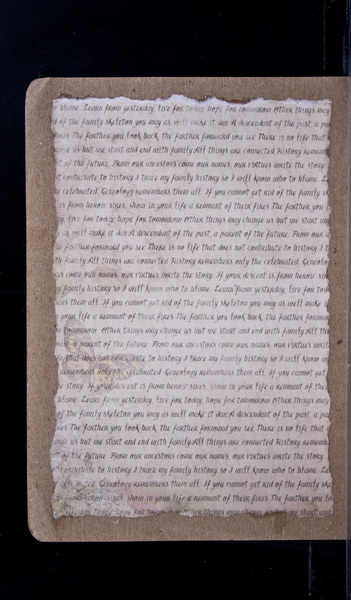 to blame. Learn from yesterday, live for today, hope for tomorrow Other things may
of the family skeleton you may as well make it dan A descendant of the past, a par
fires The farther you look back, the farther forward you see There is no life that
us but we start and end with family All things are connected History remem
of the future. From our ancestors come our names, our virtues write the story.
not contribute to history I trace my family history so I will know who to blame. Le
the celebrated. Geneology remembers them all. If you cannot get rid of the family sk
is from heroic sires, show in your life a remnant of their fires The farther you
live for today, hope for tomorrow Other things may change us but we start and
as well make it dan A descendant of the past, a parent of the future. From our
the farther forward you see There is no life that does not contribute to history I
family All things are connected History remembers only the celebrated. Geneology
come our names, our virtues write the story. If your descent is from heroic sir
family history so I will know who to blame. Learn from yesterday, live for toda
them all. If you cannot get rid of the family skeleton you may as well make
your life a remnant of their fires The farther you look back, the farther forwar
tomorrow Other things may change us but we start and end with family All thin
parent of the future. From our ancestors come our names, our virtues write
that does not contribute to history I trace my family history so I will know
remembers only the celebrated. Geneology remembers them all. If you cannot get
the story. If your descent is from heroic sires, show in your life a remnant of the
blame. Learn from yesterday, live for today, hope for tomorrow Other things may
of the family skeleton you may as well make it dan A descendant of the past, a par
The farther you look back, the farther forward you see There is no life
us but we start and end with family All things are connected History rememb
of the future. From our ancestors come our names, our virtues write the story
contribute to history I trace my family history so I will know who to blame. Le
Geneology remembers them all. If you cannot get rid of the family ske
sires, show in your life a remnant of their fires The farther you
today, hope for tomorrow Other things may change us but we start and